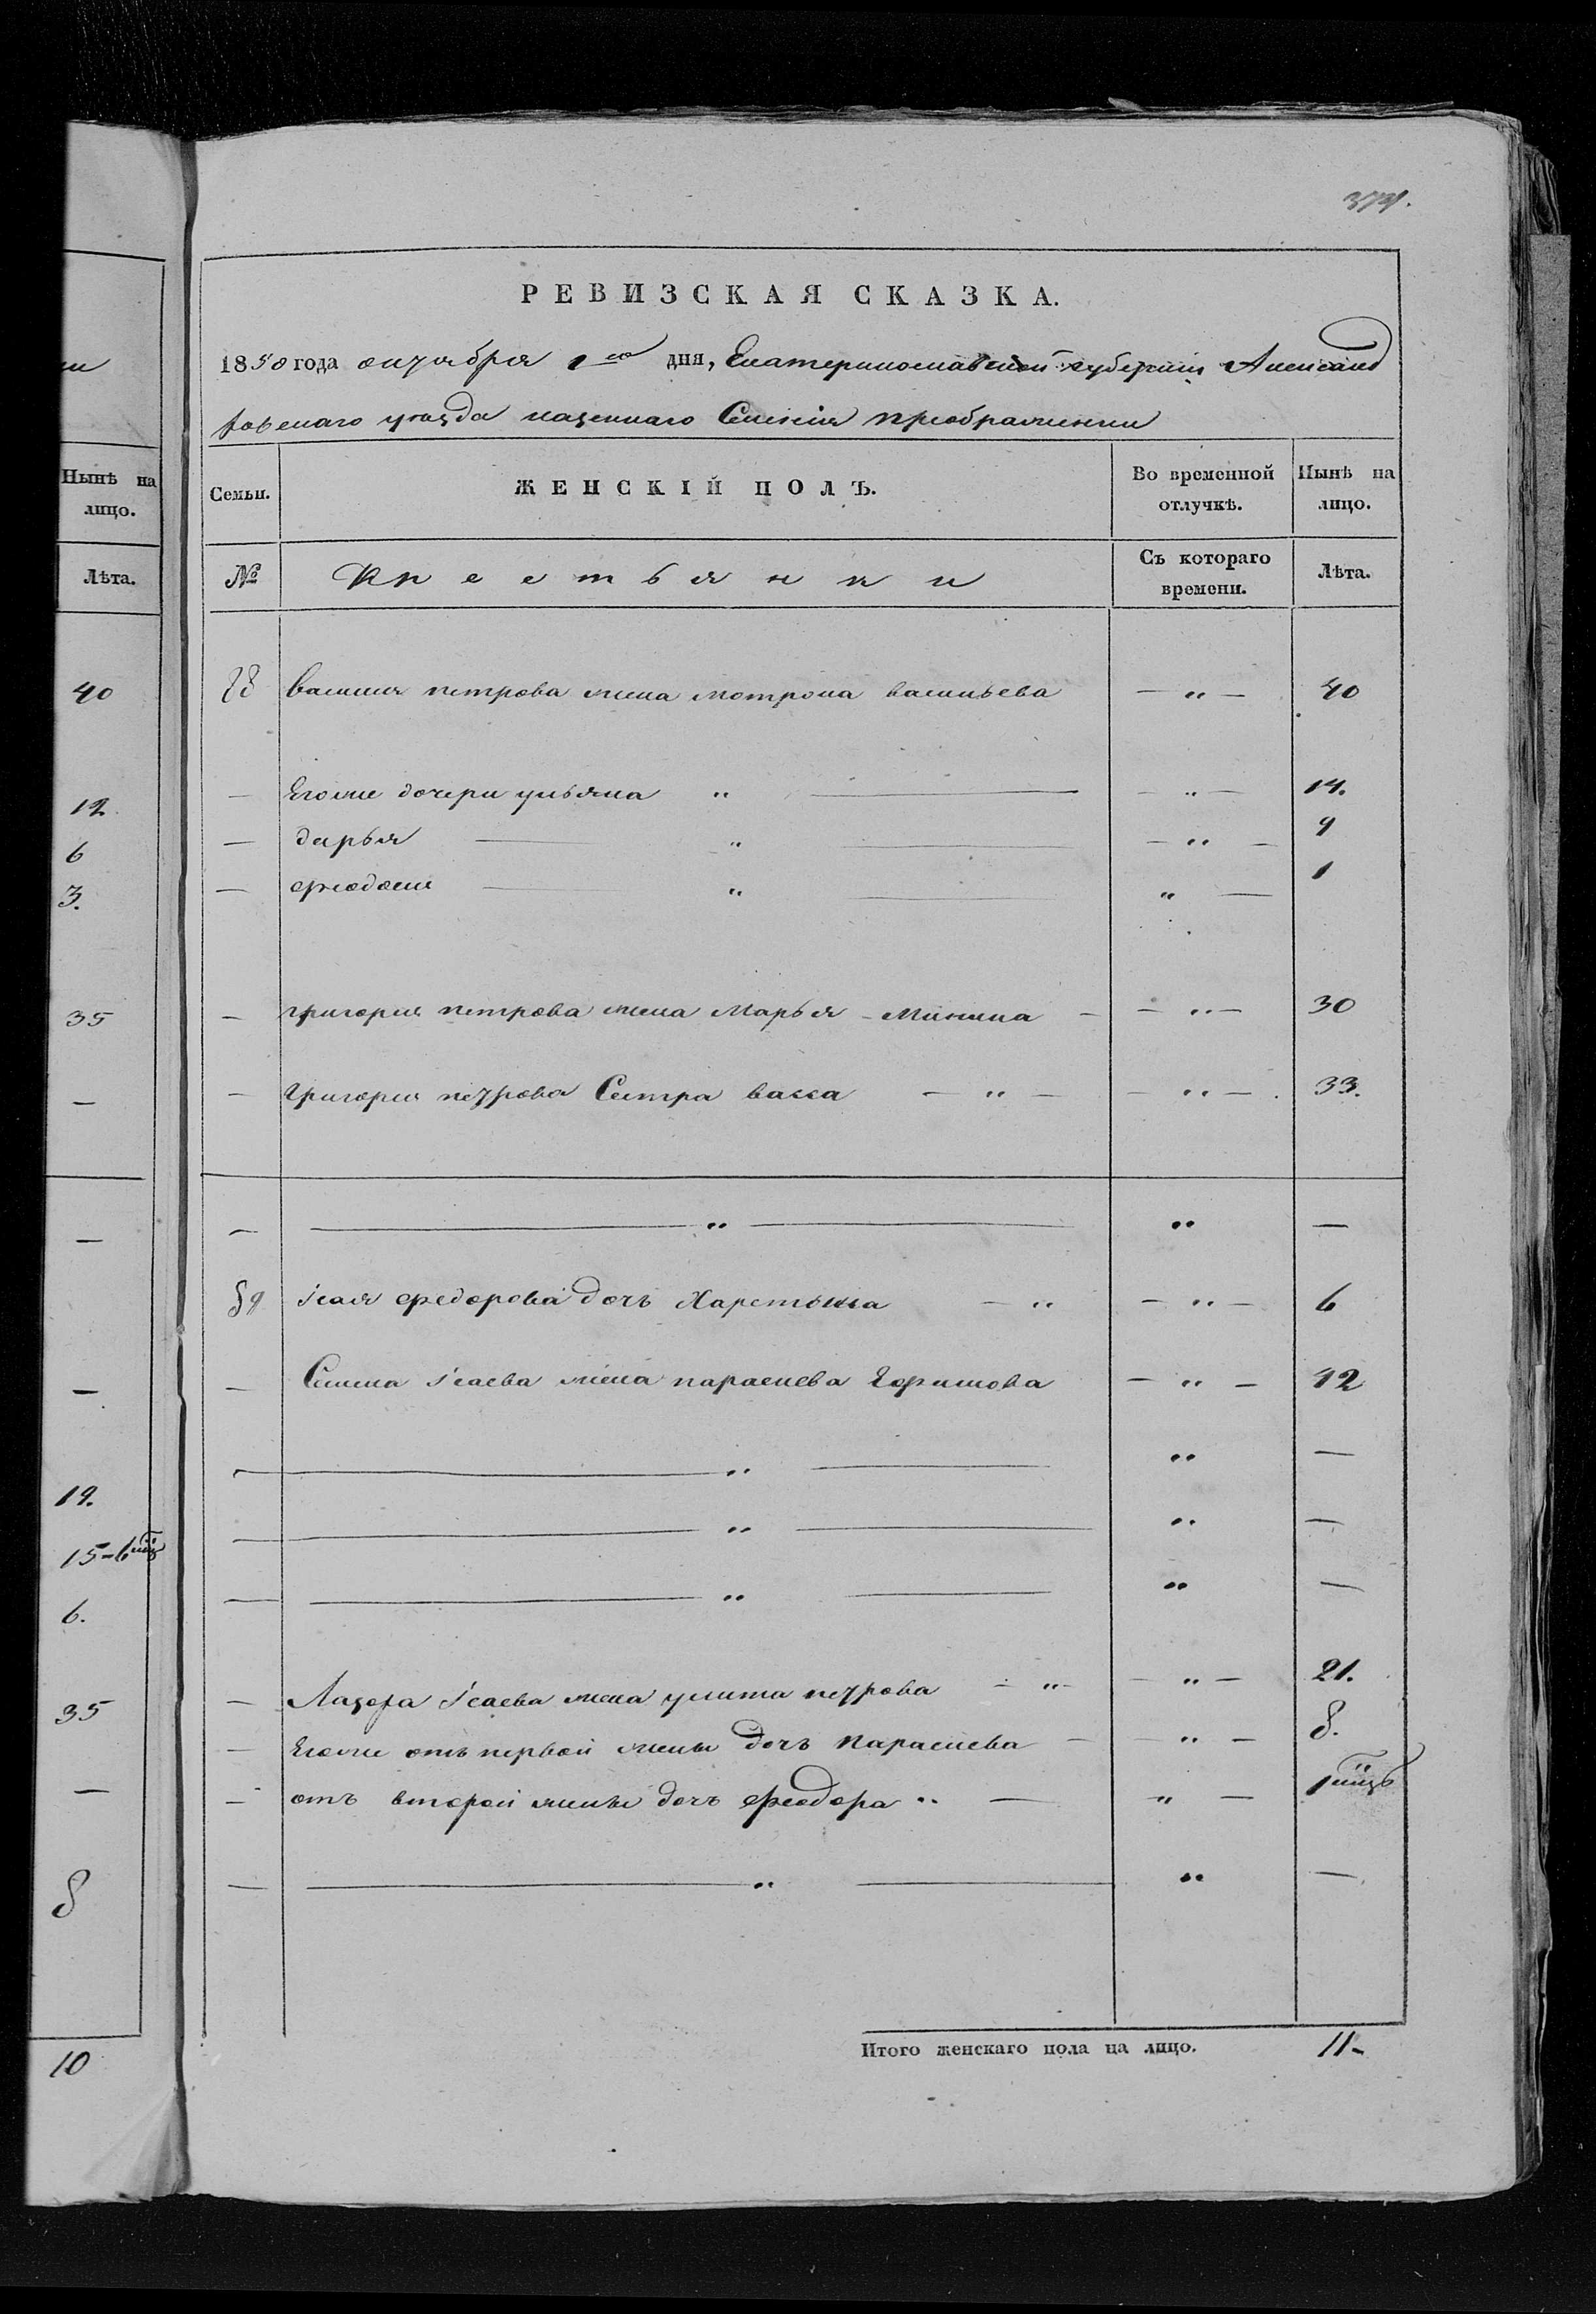 РЕВИЗСКАЯ СКАЗКА.
1850 года октября 1го дня, Екатеринославской губернии Александ
ровскаго уезда казеннаго Селения преображенки
Нынѣ на лицо.
Семьи.
ЖЕНСКІЙ ПОЛЪ.
Во временной отлучкѣ.
Нынѣ на лицо.
Лѣта.
№
Крестьянки
Съ котораго времени.
Лѣта.
40
василия петрова жена мотрона васильева — „ — 40
12
— Егоже дочери ульяна „ — — „ — 14.
6
— дарья — „ — — „ — 9
3.
— феодосия — „ — „ — 1
35
— григория петрова жена Марья Минина — — „ — 30
—
— григория петрова Сестра васса — „ — — „ — 33.
—
— — „ — „ —
59 исая федорова дочь Харетинья — „ — „ — 6
—
— Семена исаева жена параскева Ефимова — „ — 42
— — „ — „ —
19.
— — „ — „ —
15-6
6.
— — „ — „ —
35
— Лазора исаева жена улита петрова — „ — — „ — 21.
— Егоже отъ первой жены дочь параскева — „ — 8.
—
— отъ второй жены дочь феодора „ — „ — 1 мцъ
8
— — „ — „ —
10
Итого женскаго пола на лицо. 11-